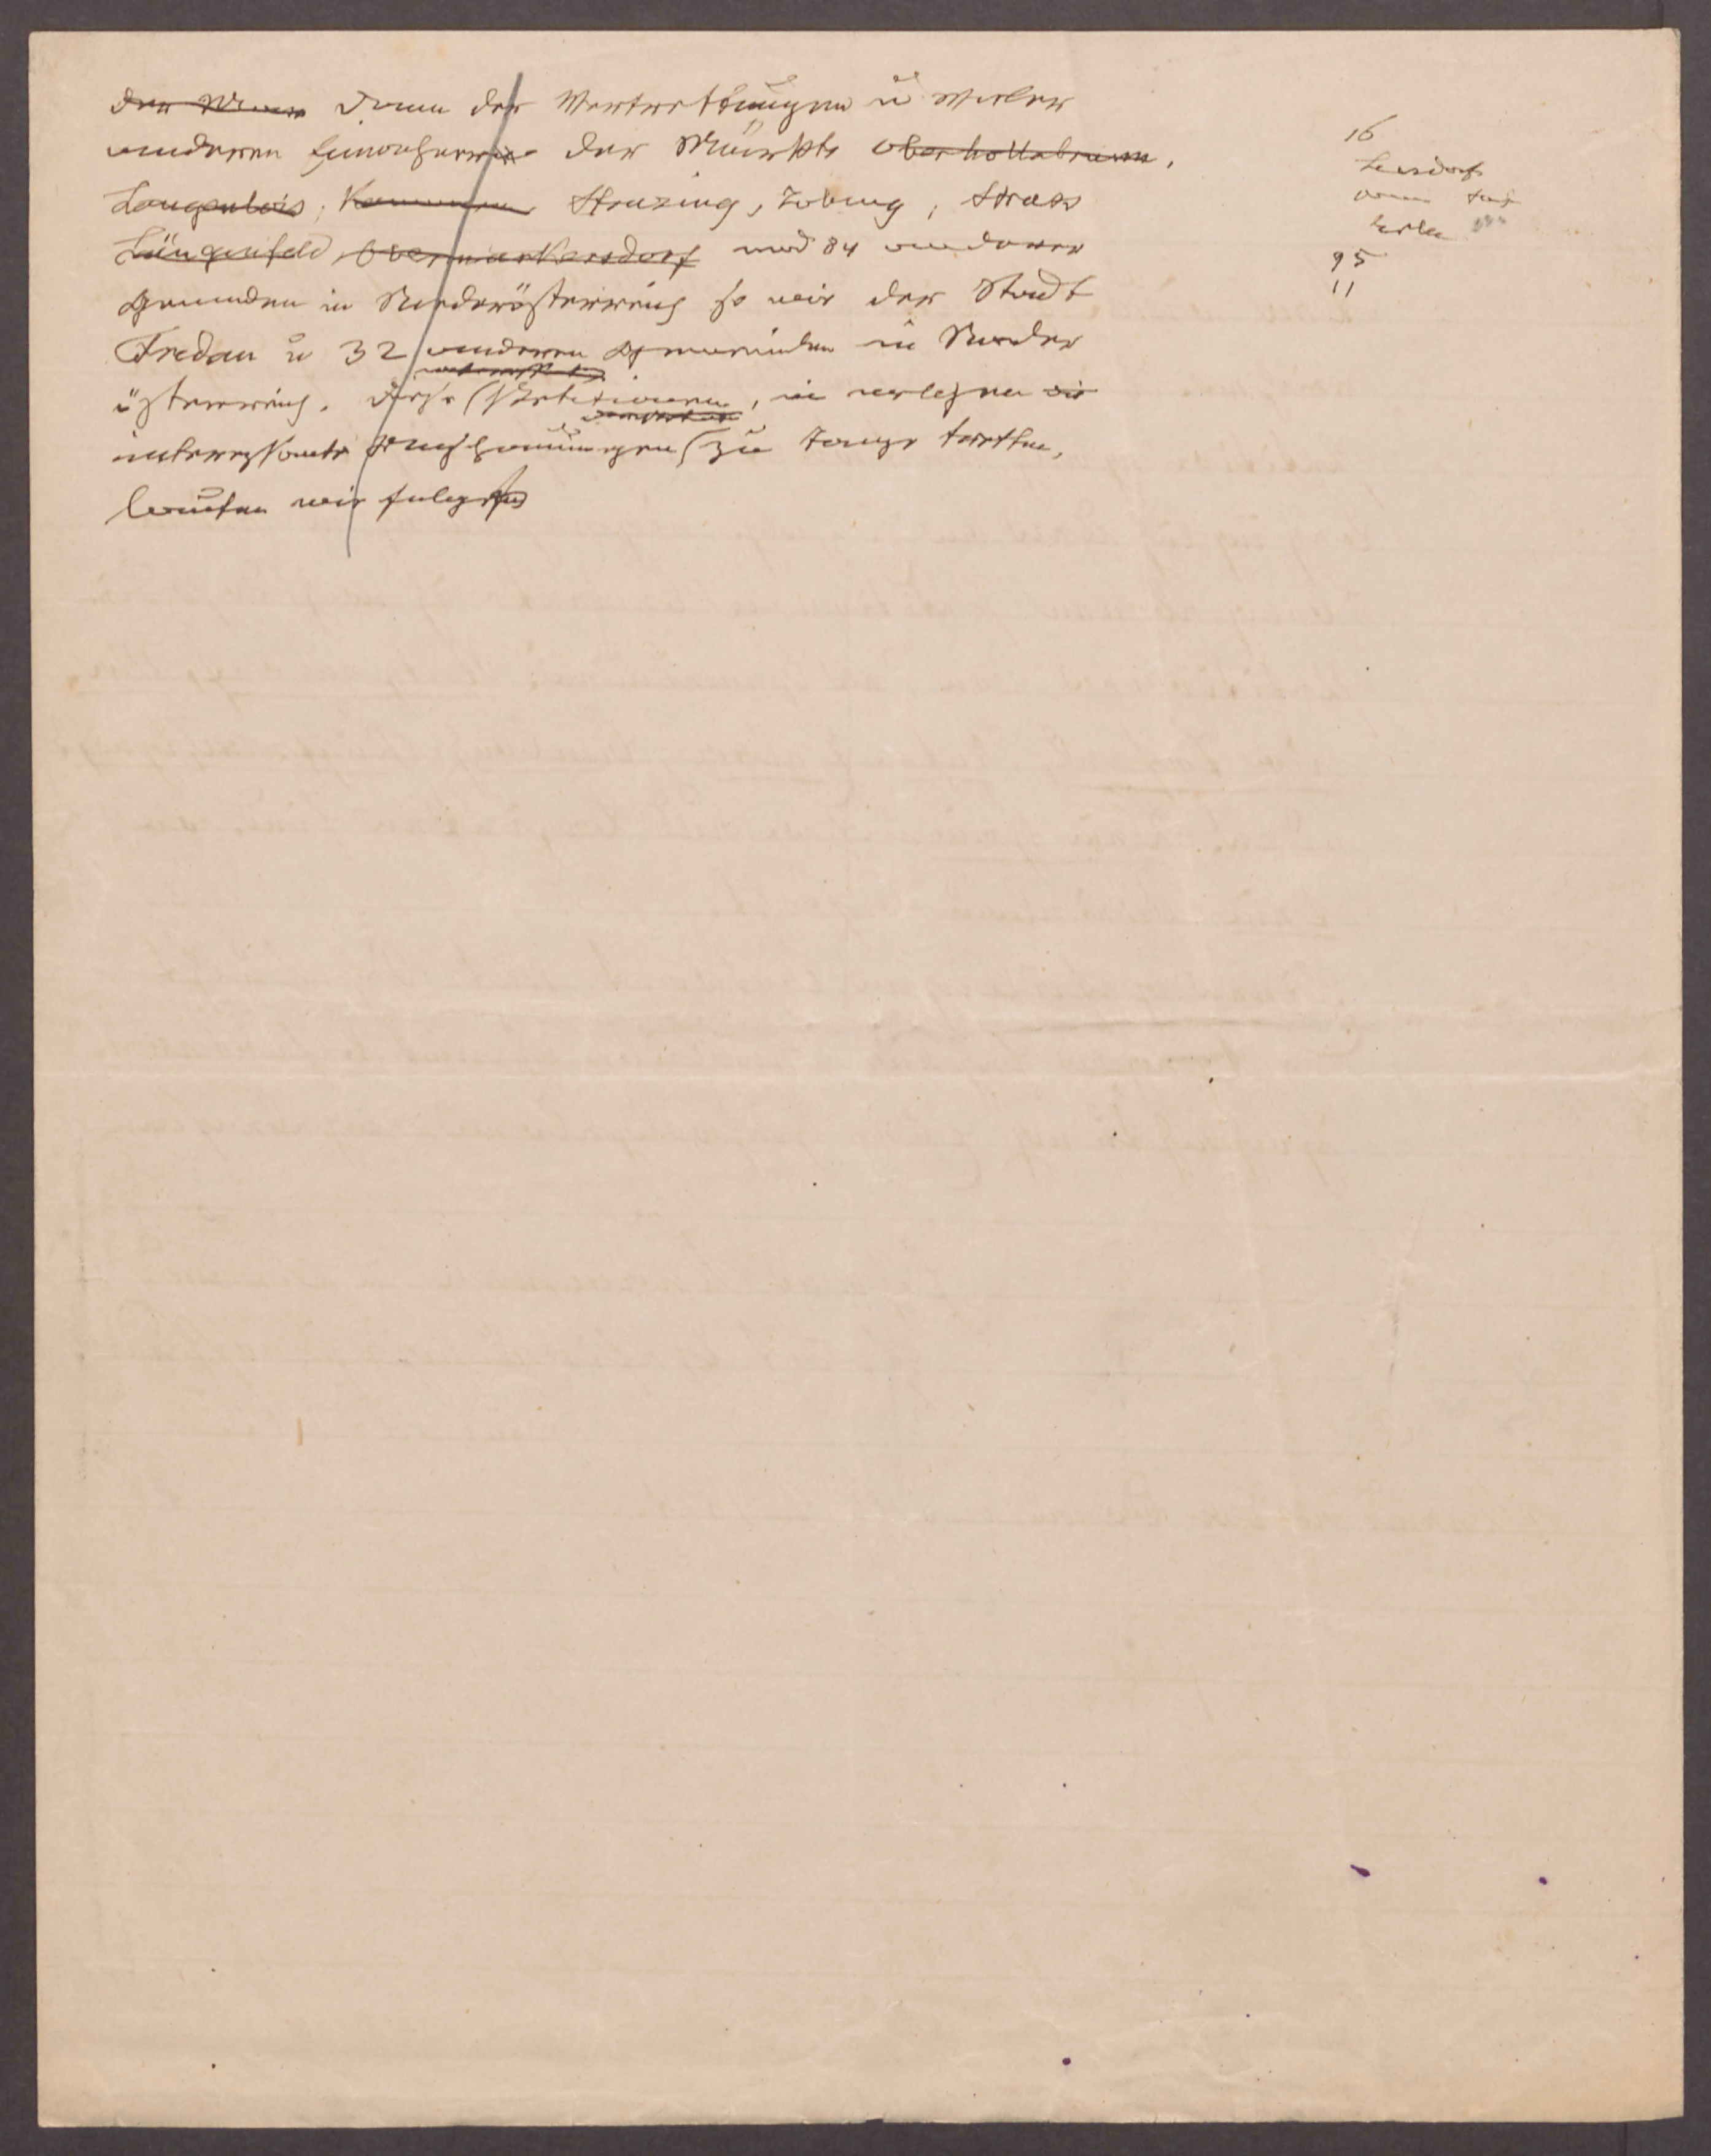 der Wiener dann der Vertretungen u vieler
anderen Einwohner der Märkte Oberhollabrunn,
Langenlois, Strazing, Zöbing, Strass
Längenfeld, Obermarkersdorf und 84 anderen
Gemeinden in Niederösterreich so wie der Stadt
Fredau u 32 anderen Gemeinden in Nieder
österreich. Diese Petitionen, in welchen die
interessante Anschauungen zu Tage treten,
lauten wie folgt
16
95
11